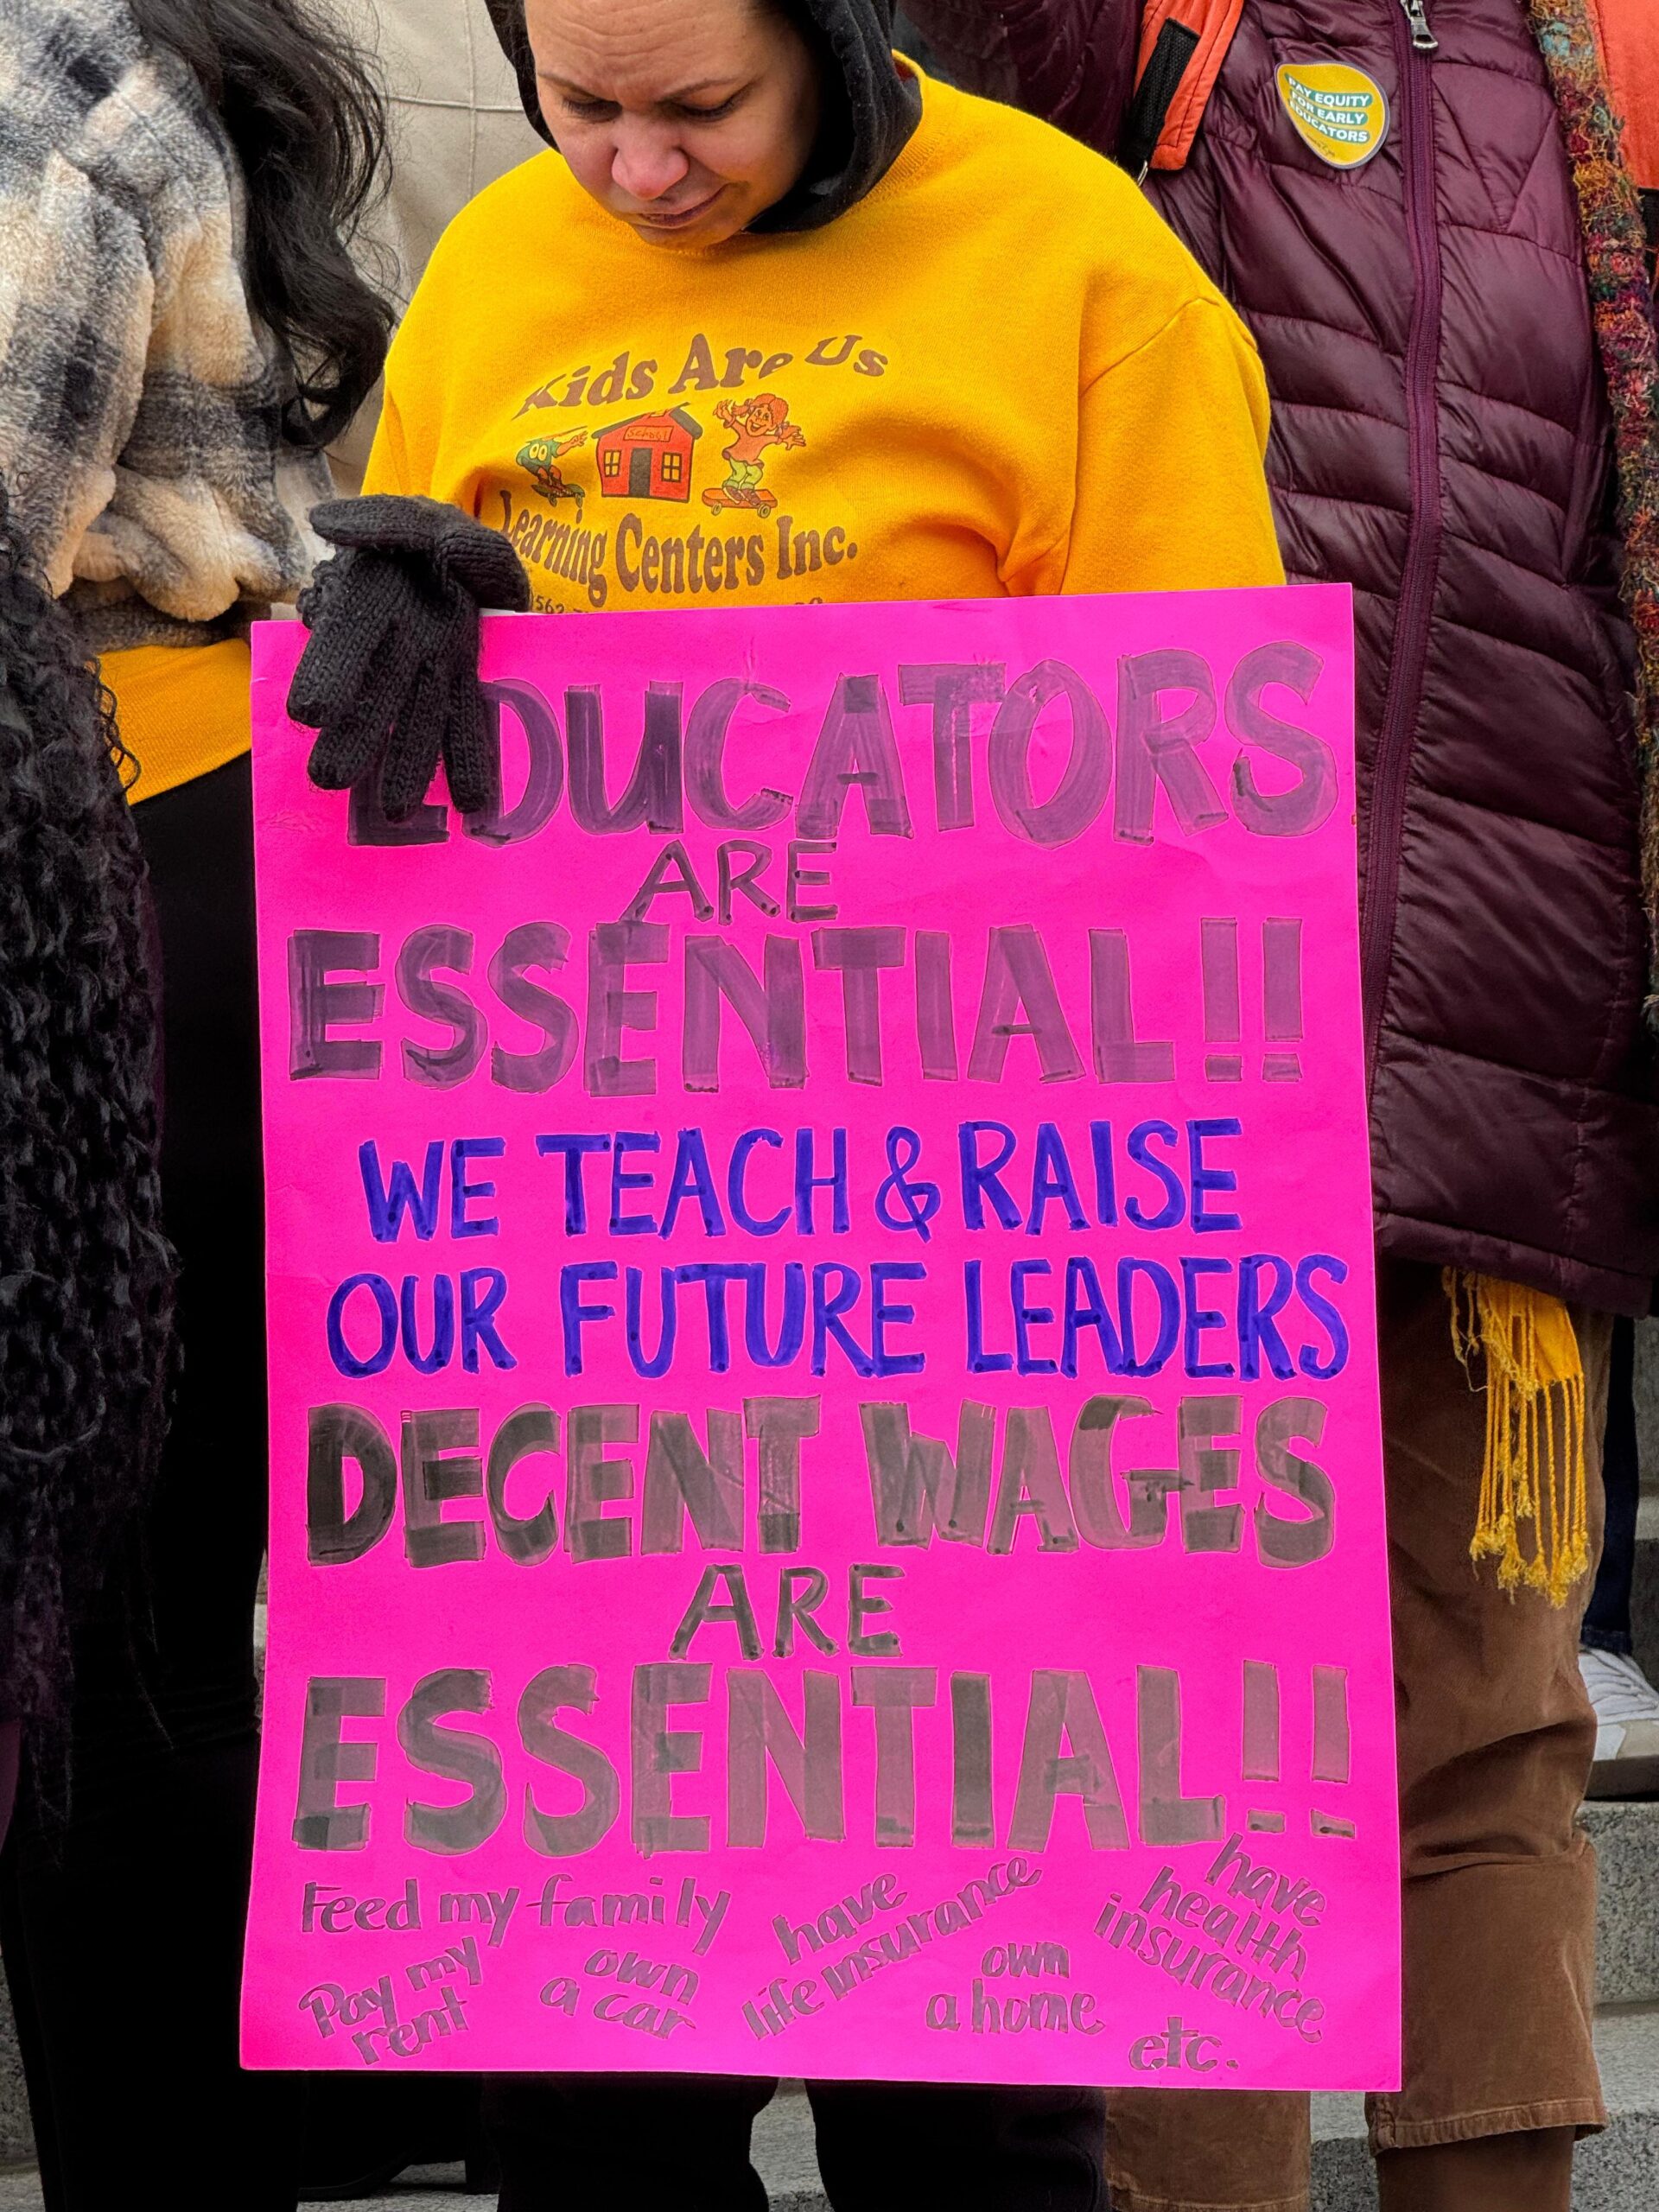 PAY EQUITY
FOR EARLY
EDUCATORS
Kids Are Us
School
Learning Centers Inc.
EDUCATORS
ARE
ESSENTIAL!!
WE TEACH & RAISE
OUR FUTURE LEADERS
DECENT WAGES
ARE
ESSENTIAL!!
Feed my family
have
life insurance
have
health
insurance
Pay my
rent
own
a car
own
a home
etc.